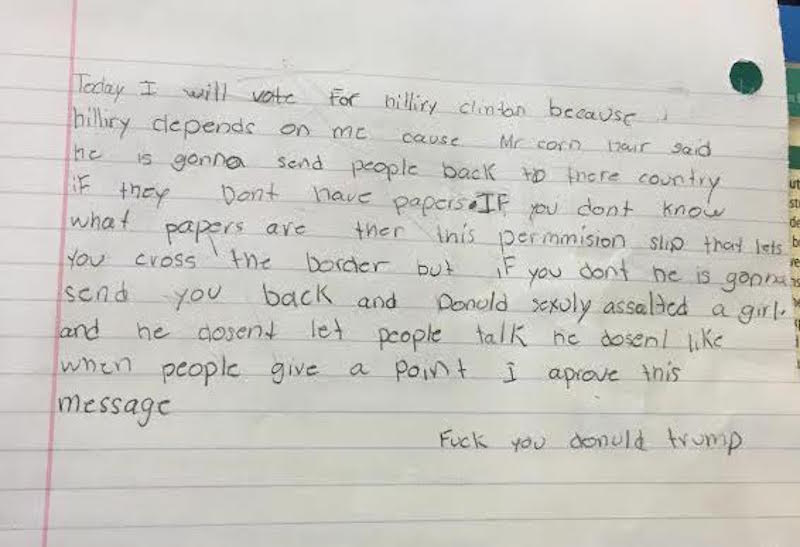 Today I will vote for hilliry clintan because
hilliry depends on me cause Mr corn hair said
he is gonna send people back to there country
if they Dont have papers. IF you dont know
what papers are ther this permmision slip that lets
you cross the border but iF you dont he is gonna
send you back and Donold sexuly assalted a girl.
and he dosent let people talk he dosent like
when people give a point I aprove this
message
Fuck you donuld trump